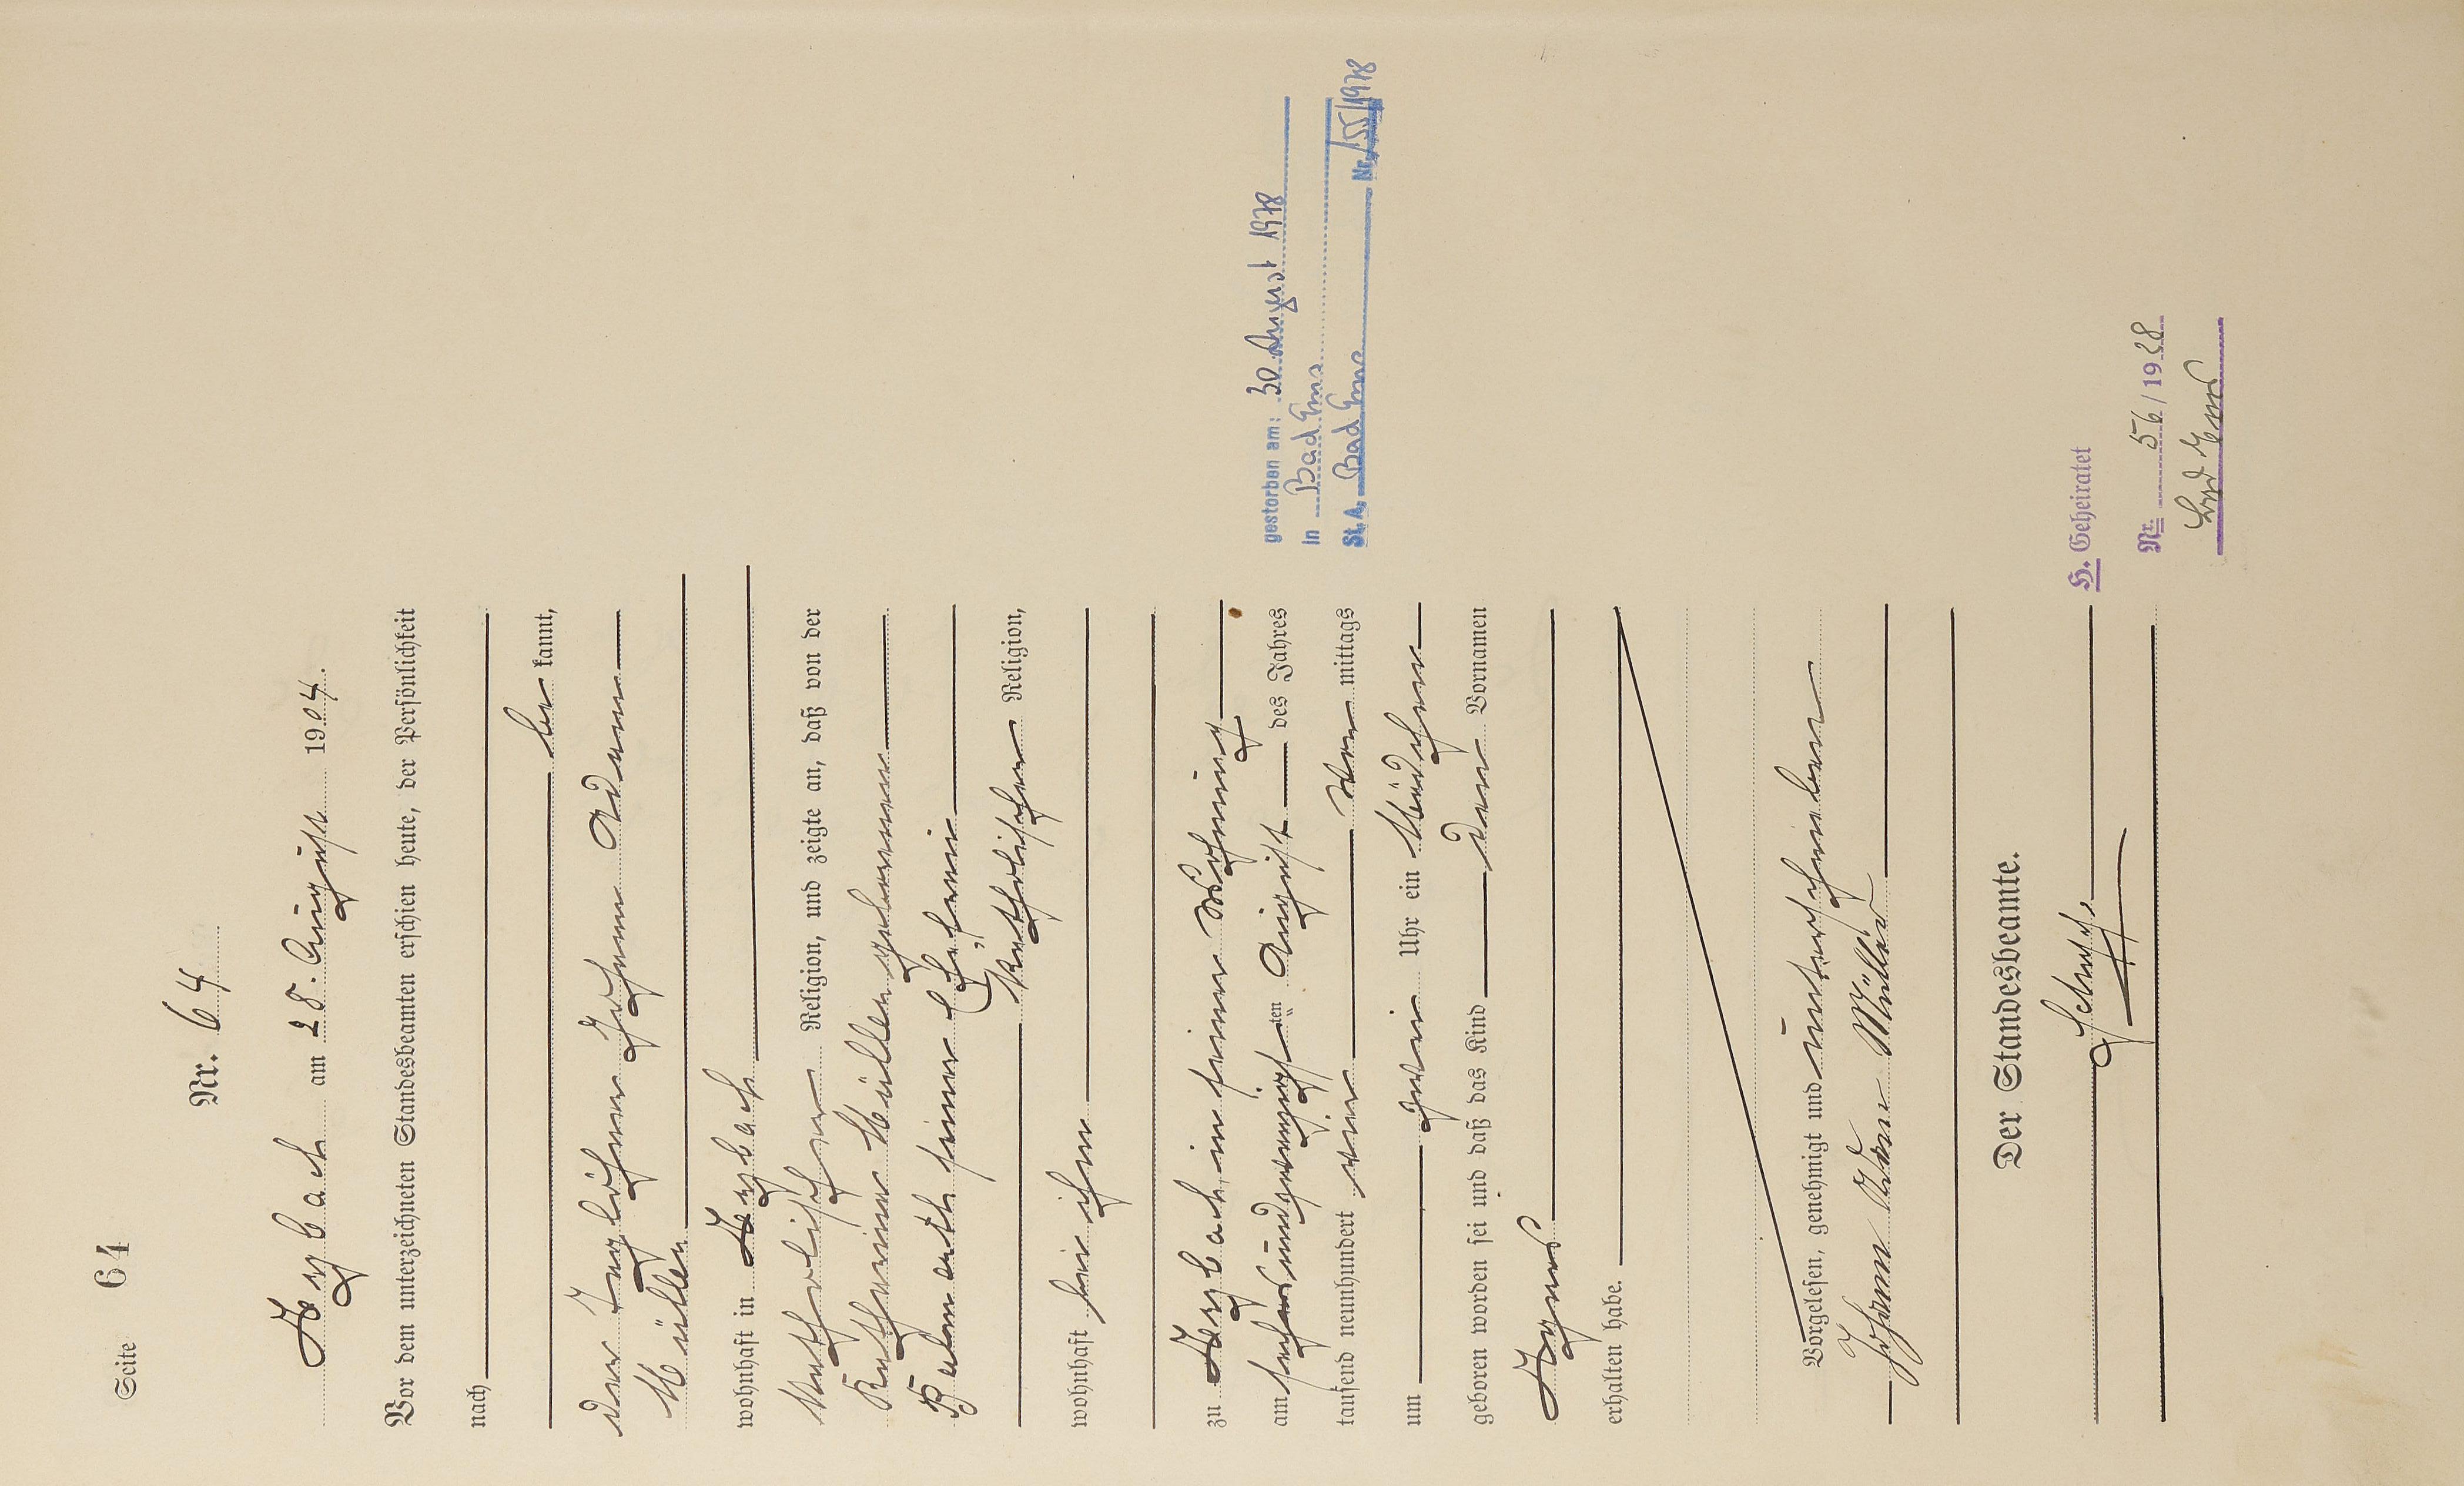 Seite 64
Nr. 64
Arzbach am 28. August 1904.
Vor dem unterzeichneten Standesbeamten erschien heute, der Persönlichkeit
nach
be kannt,
der Taglöhner Johann Adam
Müller
wohnhaft in Arzbach
katholischer Religion, und zeigte an, daß von der
Katharina Müller geborenen
seiner Ehefrau
katholischer Religion,
wohnhaft bei ihm
zu Arzbach, in seiner Wohnung
am sechsundzwanzigsten August des Jahres
tausend neunhundert vier Vor mittags
um zwei Uhr ein Mädchen
geboren worden sei und daß das Kind den Vornamen
Agnes
erhalten habe.
Vorgelesen, genehmigt und unterschrieben
Johann Adam Müller
Der Standesbeamte.
Schupp
gestorben am: 30. August 1978
in Bad Ems
St. A. Bad Ems Nr. 155/1978
H. Geheiratet
Nr. 56/1928
Bad Ems